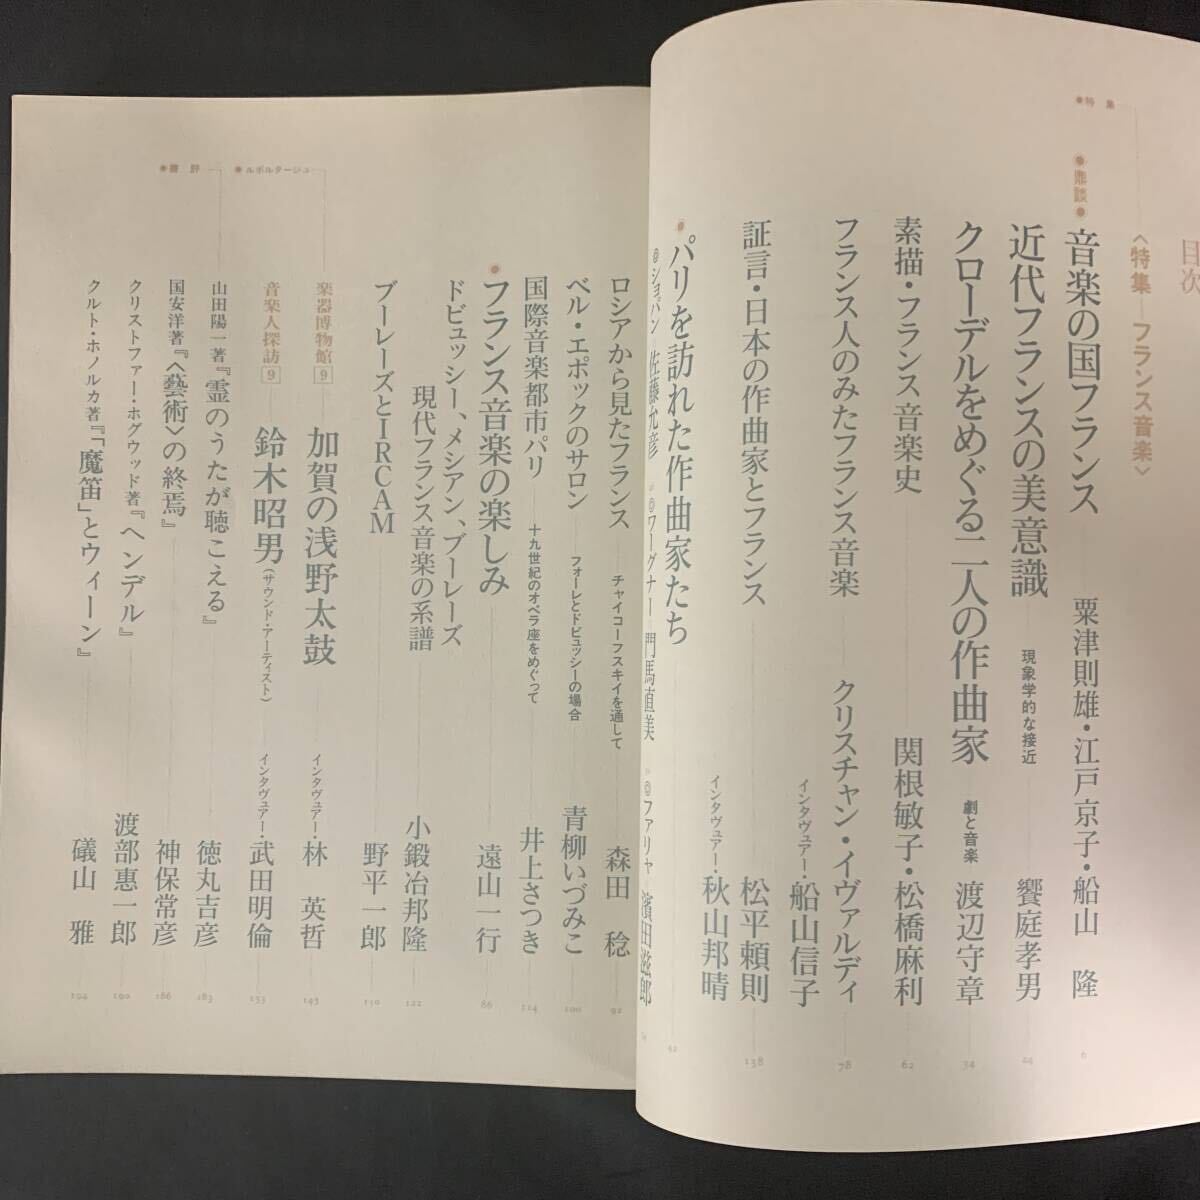 目次
●特集
〈特集―フランス音楽〉
●鼎談●
音楽の国フランス 粟津則雄・江戸京子・船山 隆 6
近代フランスの美意識 現象学的な接近 饗庭孝男 24
クローデルをめぐる二人の作曲家 劇と音楽 渡辺守章 34
素描・フランス音楽史 関根敏子・松橋麻利 62
フランス人のみたフランス音楽 クリスチャン・イヴァルディ 78
インタヴュアー・船山信子
証言・日本の作曲家とフランス 松平頼則 138
インタヴュアー・秋山邦晴
●パリを訪れた作曲家たち 42
◎ショパン 佐藤允彦 ◎ワーグナー 門馬直美 ◎ファリャ 濱田滋郎
ロシアから見たフランス チャイコーフスキイを通して 森田 稔 92
ベル・エポックのサロン フォーレとドビュッシーの場合 青柳いづみこ 100
国際音楽都市パリ 十九世紀のオペラ座をめぐって 井上さつき 114
●フランス音楽の楽しみ 遠山一行 86
ドビュッシー、メシアン、ブーレーズ
現代フランス音楽の系譜 小鍛冶邦隆 122
ブーレーズとIRCAM 野平一郎 130
●ルポルタージュ
楽器博物館9 加賀の浅野太鼓 インタヴュアー・林 英哲 145
音楽人探訪9 鈴木昭男(サウンド・アーティスト) インタヴュアー・武田明倫 153
●書評
山田陽一著『霊のうたが聴こえる』 徳丸吉彦 183
国安洋著『〈藝術〉の終焉』 神保常彦 186
クリストファー・ホグウッド著『ヘンデル』 渡部惠一郎 190
クルト・ホノルカ著『「魔笛」とウィーン』 礒山 雅 194